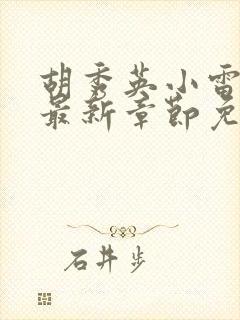 胡秀英小雷
最新章节免
石井步